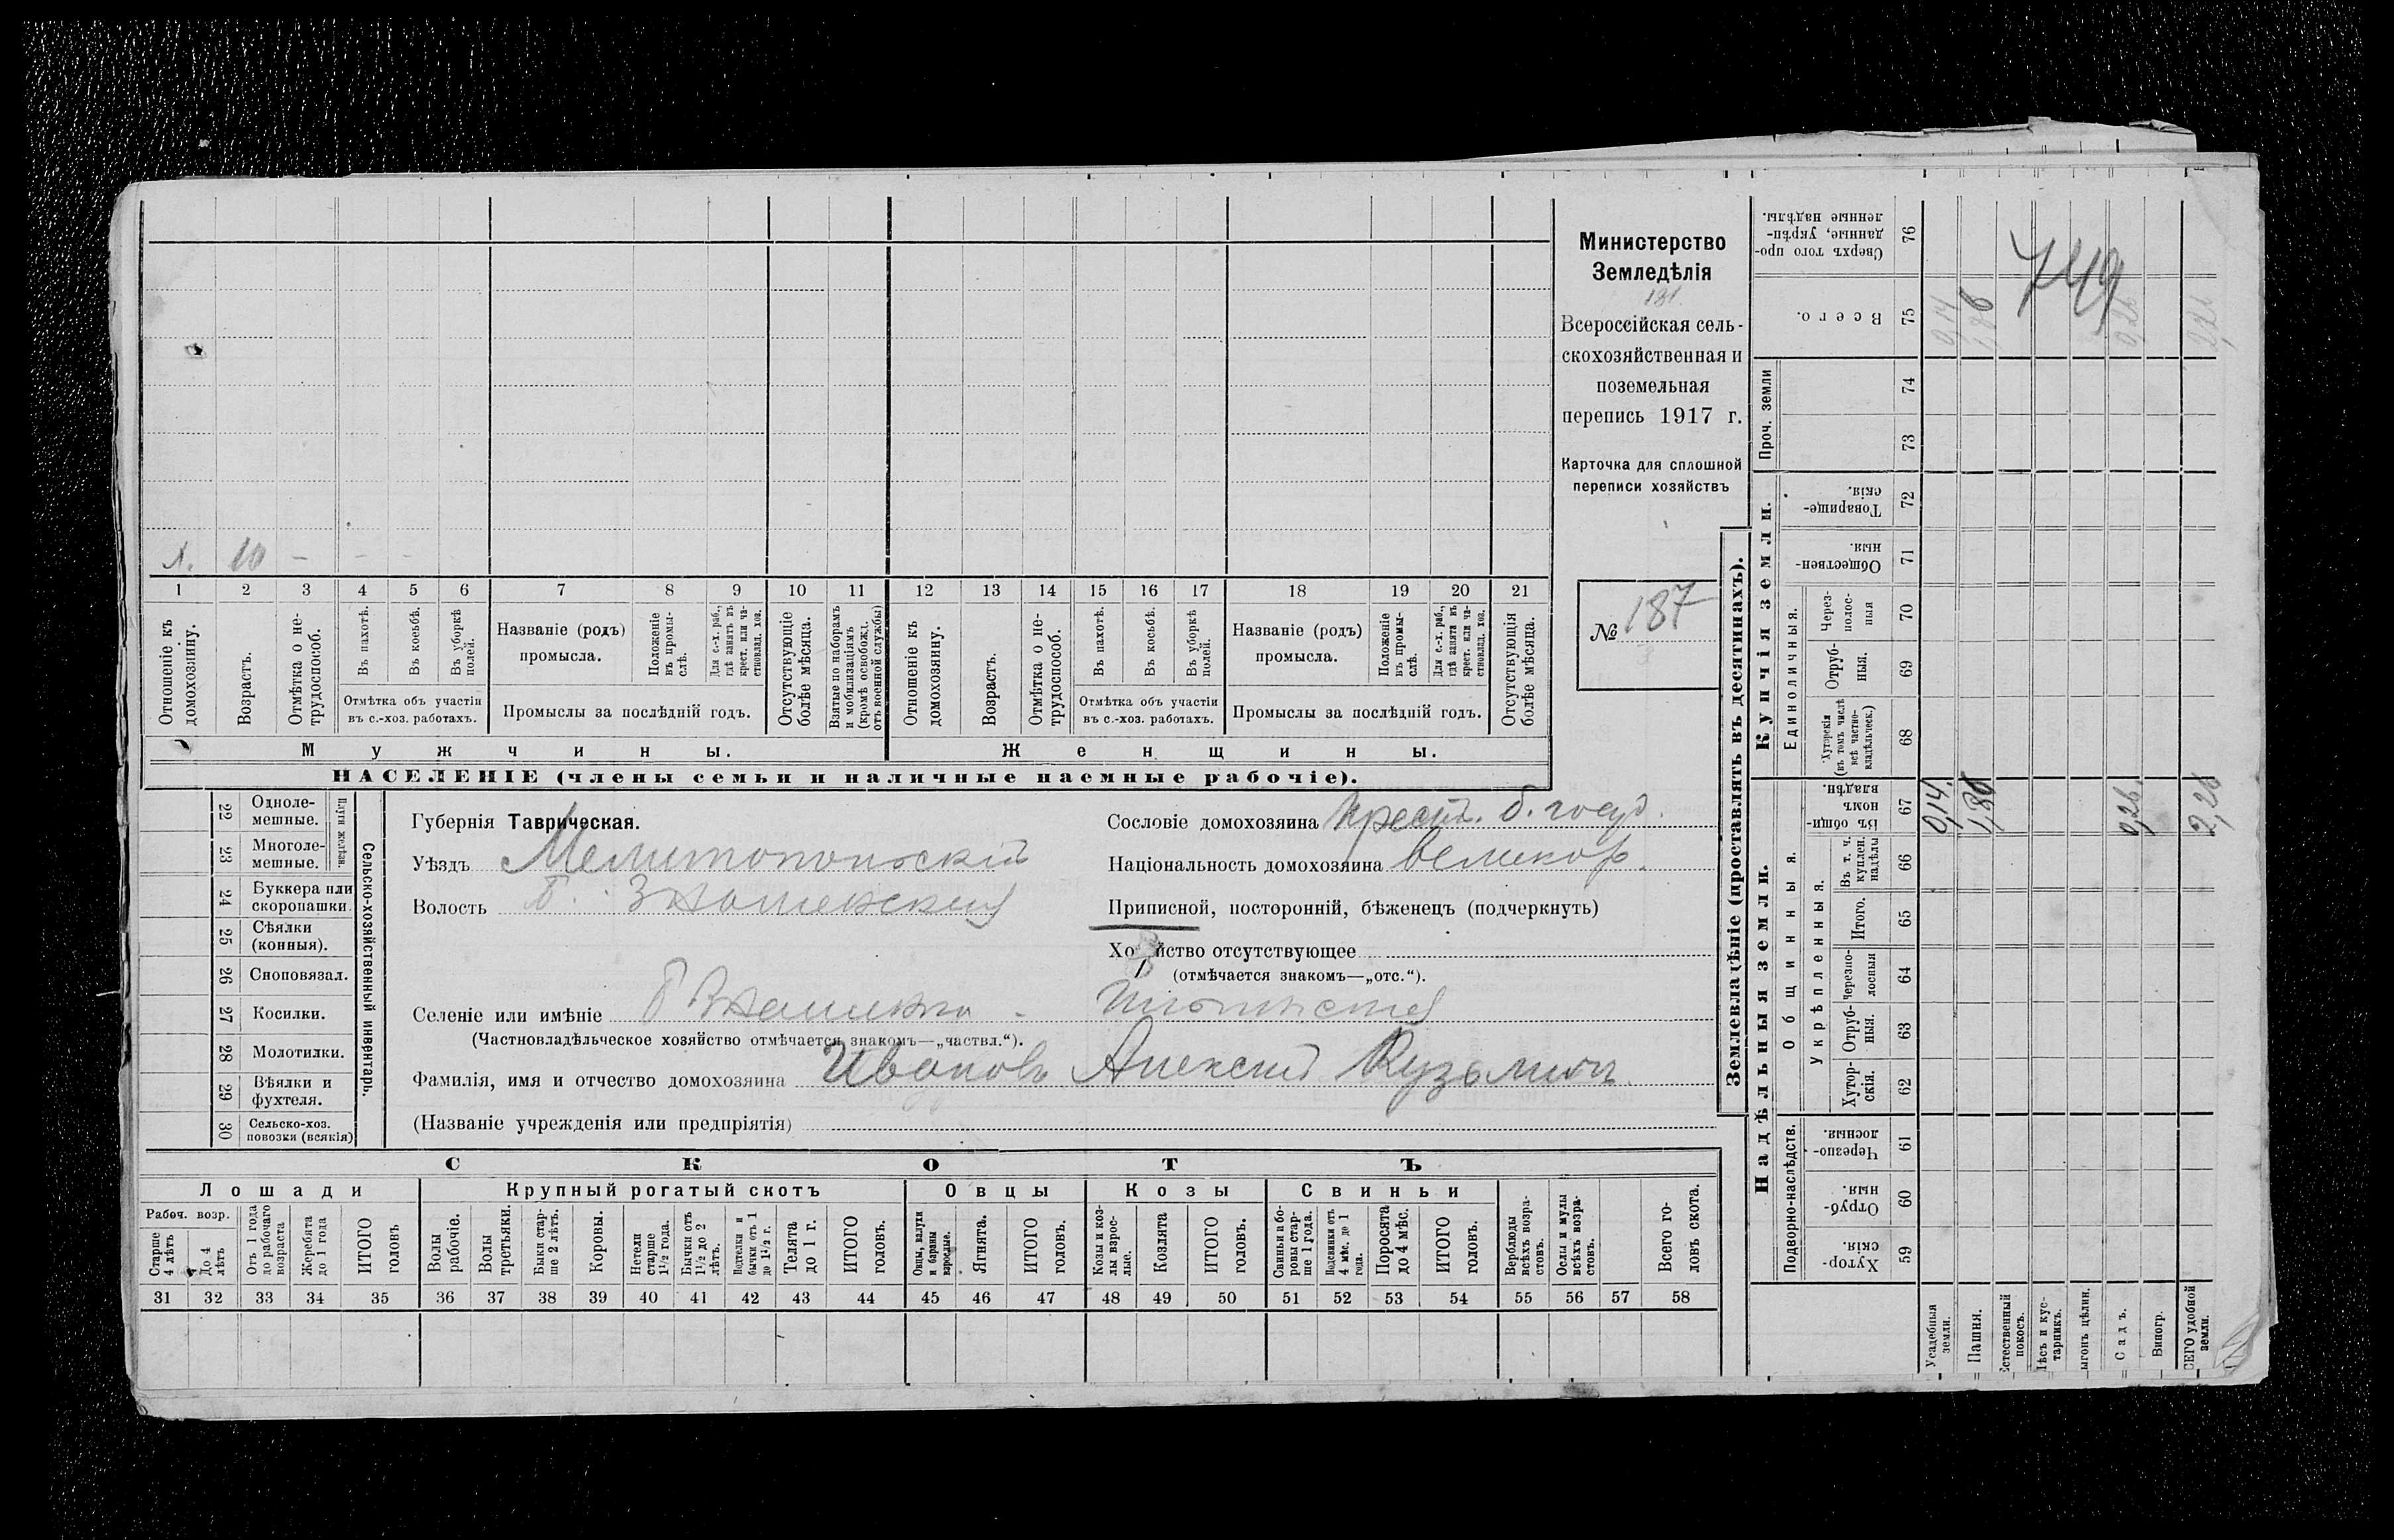 Министерство
Земледѣлія
131.
Всероссійская сель-
скохозяйственная и
поземельная
перепись 1917 г.
Карточка для сплошной
переписи хозяйствъ
№ 187
х. 10 — — —
1 2 3 4 5 6 7 8 9 10 11 12 13 14 15 16 17 18 19 20 21
Отношеніе къ домохозяину.
Возрастъ.
Отмѣтка о не-трудоспособ.
Въ пахотѣ.
Въ косьбѣ.
Въ уборкѣ полей.
Отмѣтка объ участіи
въ с.-хоз. работахъ.
Названіе (родъ)
промысла.
Положеніе въ промы-слѣ.
Для с.-х. раб., гдѣ занятъ въ крест. или ча-стновлад. хоз.
Промыслы за послѣдній годъ.
Отсутствующіе болѣе мѣсяца.
Взятые по наборамъ и мобилизаціямъ (кромѣ освобожд. отъ военной службы)
Отношеніе къ домохозяину.
Возрастъ.
Отмѣтка о не-трудоспособ.
Въ пахотѣ.
Въ косьбѣ.
Въ уборкѣ полей.
Отмѣтка объ участіи
въ с.-хоз. работахъ.
Названіе (родъ)
промысла.
Положеніе въ промы-слѣ.
Для с.-х. раб., гдѣ занята въ крест. или ча-стновлад. хоз.
Промыслы за послѣдній годъ.
Отсутствующія болѣе мѣсяца.
Мужчины.
Женщины.
НАСЕЛЕНІЕ (члены семьи и наличные наемные рабочіе).
22 Одноле-мешные.
23 Многоле-мешные.
Плуги желѣзн.
24 Буккера или скоропашки.
25 Сѣялки (конныя).
26 Сноповязал.
27 Косилки.
28 Молотилки.
29 Вѣялки и фухтеля.
30 Сельско-хоз. повозки (всякія)
Сельско-хозяйственный инвентарь.
Губернія Таврическая.
Уѣздъ Мелитопольскій
Волость Б. Знаменская
Селеніе или имѣніе Б Знаменка -
(Частновладѣльческое хозяйство отмѣчается знакомъ—„частвл.“).
Фамилія, имя и отчество домохозяина Ивановъ Алексей Кузьмич
(Названіе учрежденія или предпріятія)
Сословіе домохозяина Крест. б. госуд.
Національность домохозяина великор.
Приписной, посторонній, бѣженецъ (подчеркнуть)
Хозяйство отсутствующее
(отмѣчается знакомъ—„отс.“).
СКОТЪ
Лошади
Крупный рогатый скотъ
Овцы
Козы
Свиньи
Рабоч. возр.
Старше 4 лѣтъ
До 4 лѣтъ
Отъ 1 года до рабочаго возраста
Жеребята до 1 года
ИТОГО головъ
Волы рабочіе.
Волы третьяки.
Быки стар-ше 2 лѣтъ.
Коровы.
Нетели старше 1½ года.
Бычки отъ 1½ до 2 лѣтъ.
Подтелки и бычки отъ 1 до 1½ г.
Телята до 1 г.
ИТОГО головъ.
Овцы, валухи и бараны взрослые.
Ягнята.
ИТОГО головъ.
Козы и коз-лы взрос-лые.
Козлята
ИТОГО головъ.
Свиньи и бо-ровы стар-ше 1 года.
Подсвинки отъ 4 мѣс. до 1 года.
Поросята до 4 мѣс.
ИТОГО головъ.
Верблюды всѣхъ возра-стовъ.
Ослы и мулы всѣхъ возра-стовъ.
Всего го-ловъ скота.
31 32 33 34 35 36 37 38 39 40 41 42 43 44 45 46 47 48 49 50 51 52 53 54 55 56 57 58
Землевладѣніе (проставлять въ десятинахъ).
Надѣльныя земли.
Купчія земли.
Проч. земли
Подворно-наслѣдств.
Общинныя.
Укрѣпленныя.
Единоличныя.
76 Сверхъ того про-данные, укрѣп-ленные надѣлы.
75 Всего.
74
73
72 Товарище-скія.
71 Обществен-ныя.
70 Через-полос-ныя
69 Отруб-ныя.
68 Хуторскія (въ томъ числѣ всѣ частно-владѣльческ.)
67 Въ общин-номъ владѣн.
66 Въ т. ч. куплен. надѣлы
65 Итого.
64 Черезпо-лосныя
63 Отруб-ныя.
62 Хутор-скія.
61 Черезпо-лосныя.
60 Отруб-ныя.
59 Хутор-скія.
749
0,14 1,86 0,26 2,26
0,14. 1,86 0,26 2,26
Усадебныя земли.
Пашня.
Естественный покосъ.
Лѣсъ и кус-тарникъ.
ыгонъ цѣлин.
Садъ.
Виногр.
СЕГО удобной земли.